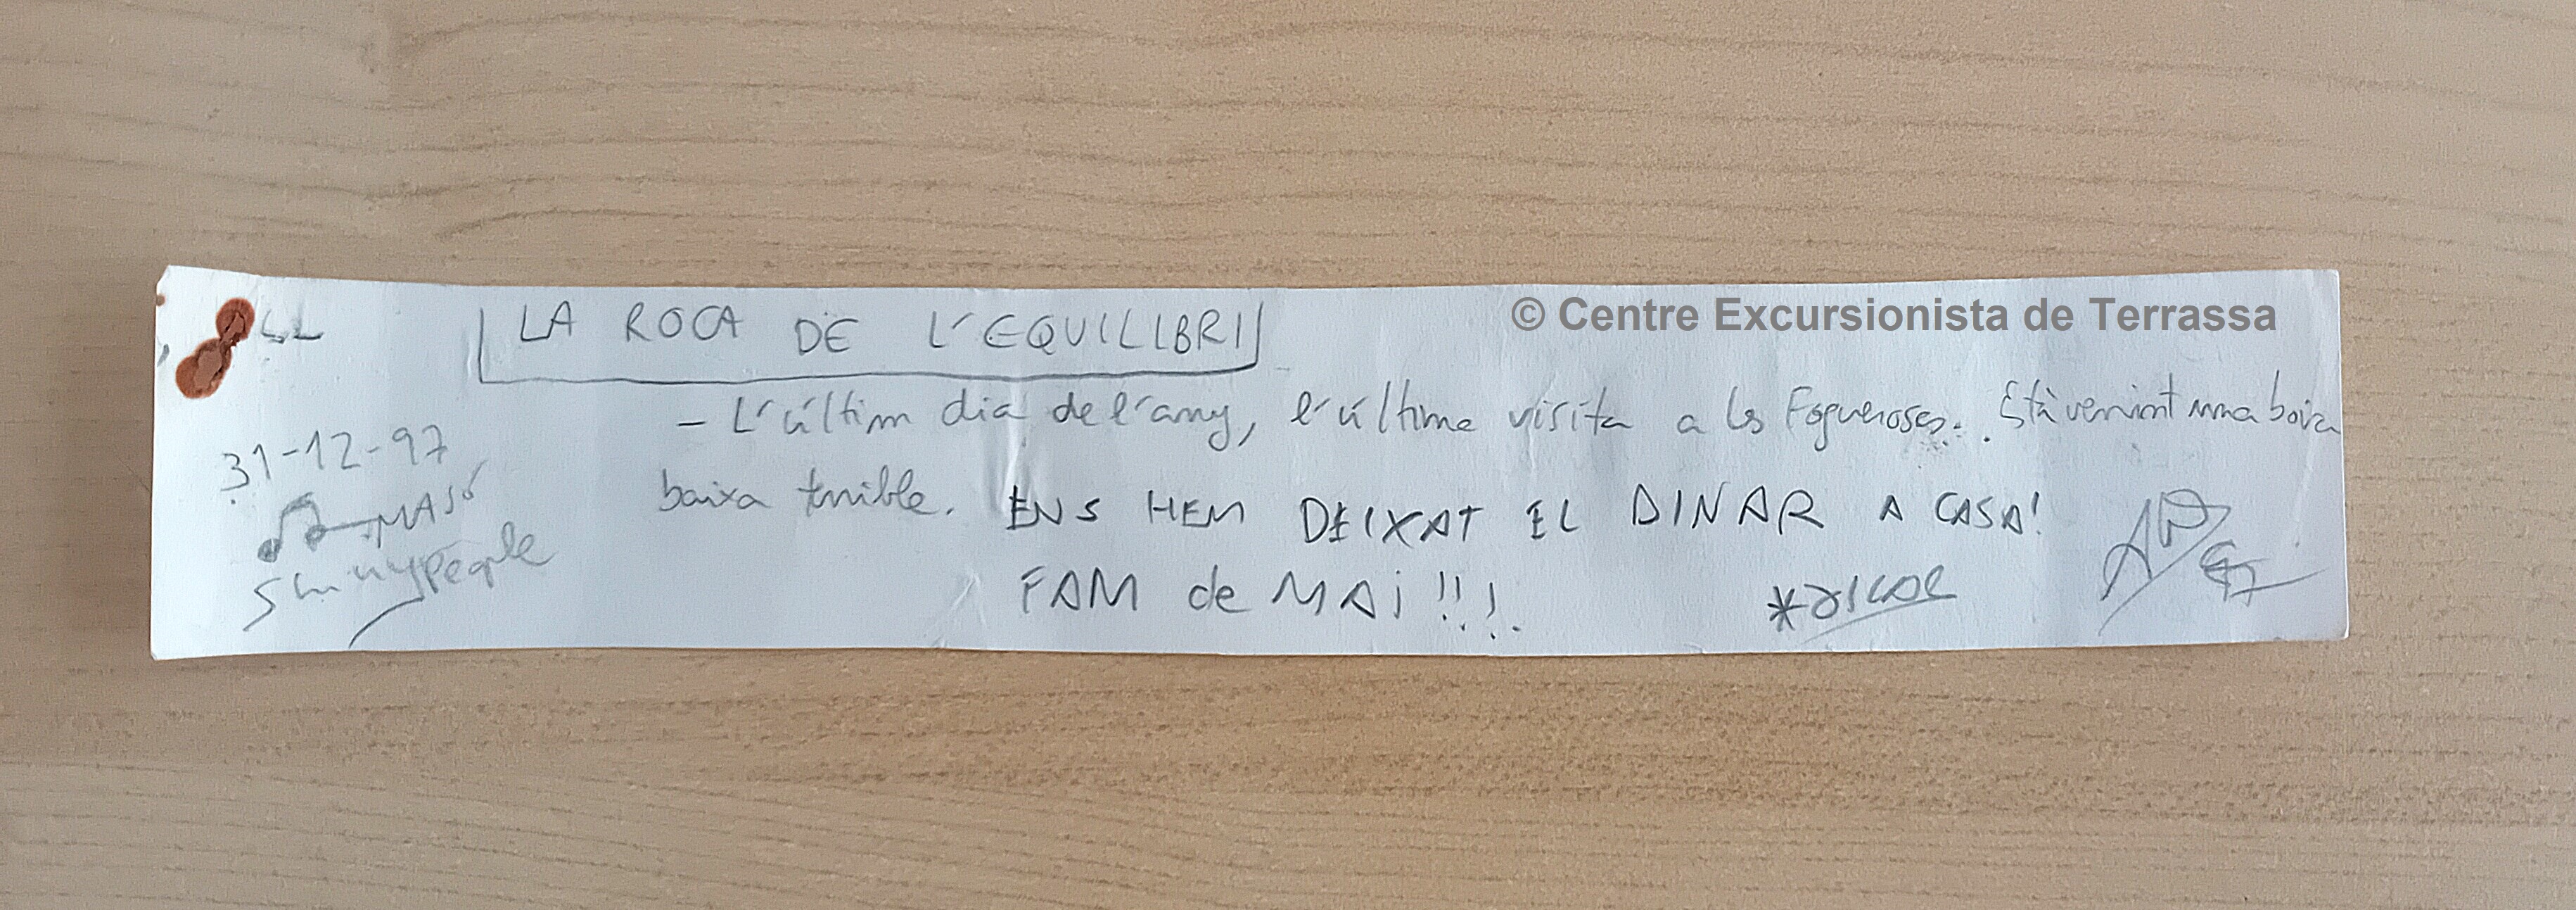 © Centre Excursionista de Terrassa
LA ROCA DE L'EQUILIBRI
- L'últim dia de l'any, l'última visita a les Fogueroses. Està venint una boira
baixa terrible. ENS HEM DEIXAT EL DINAR A CASA!
FAM de MAI !!!
31-12-97
MASÓ
Shinnypeople